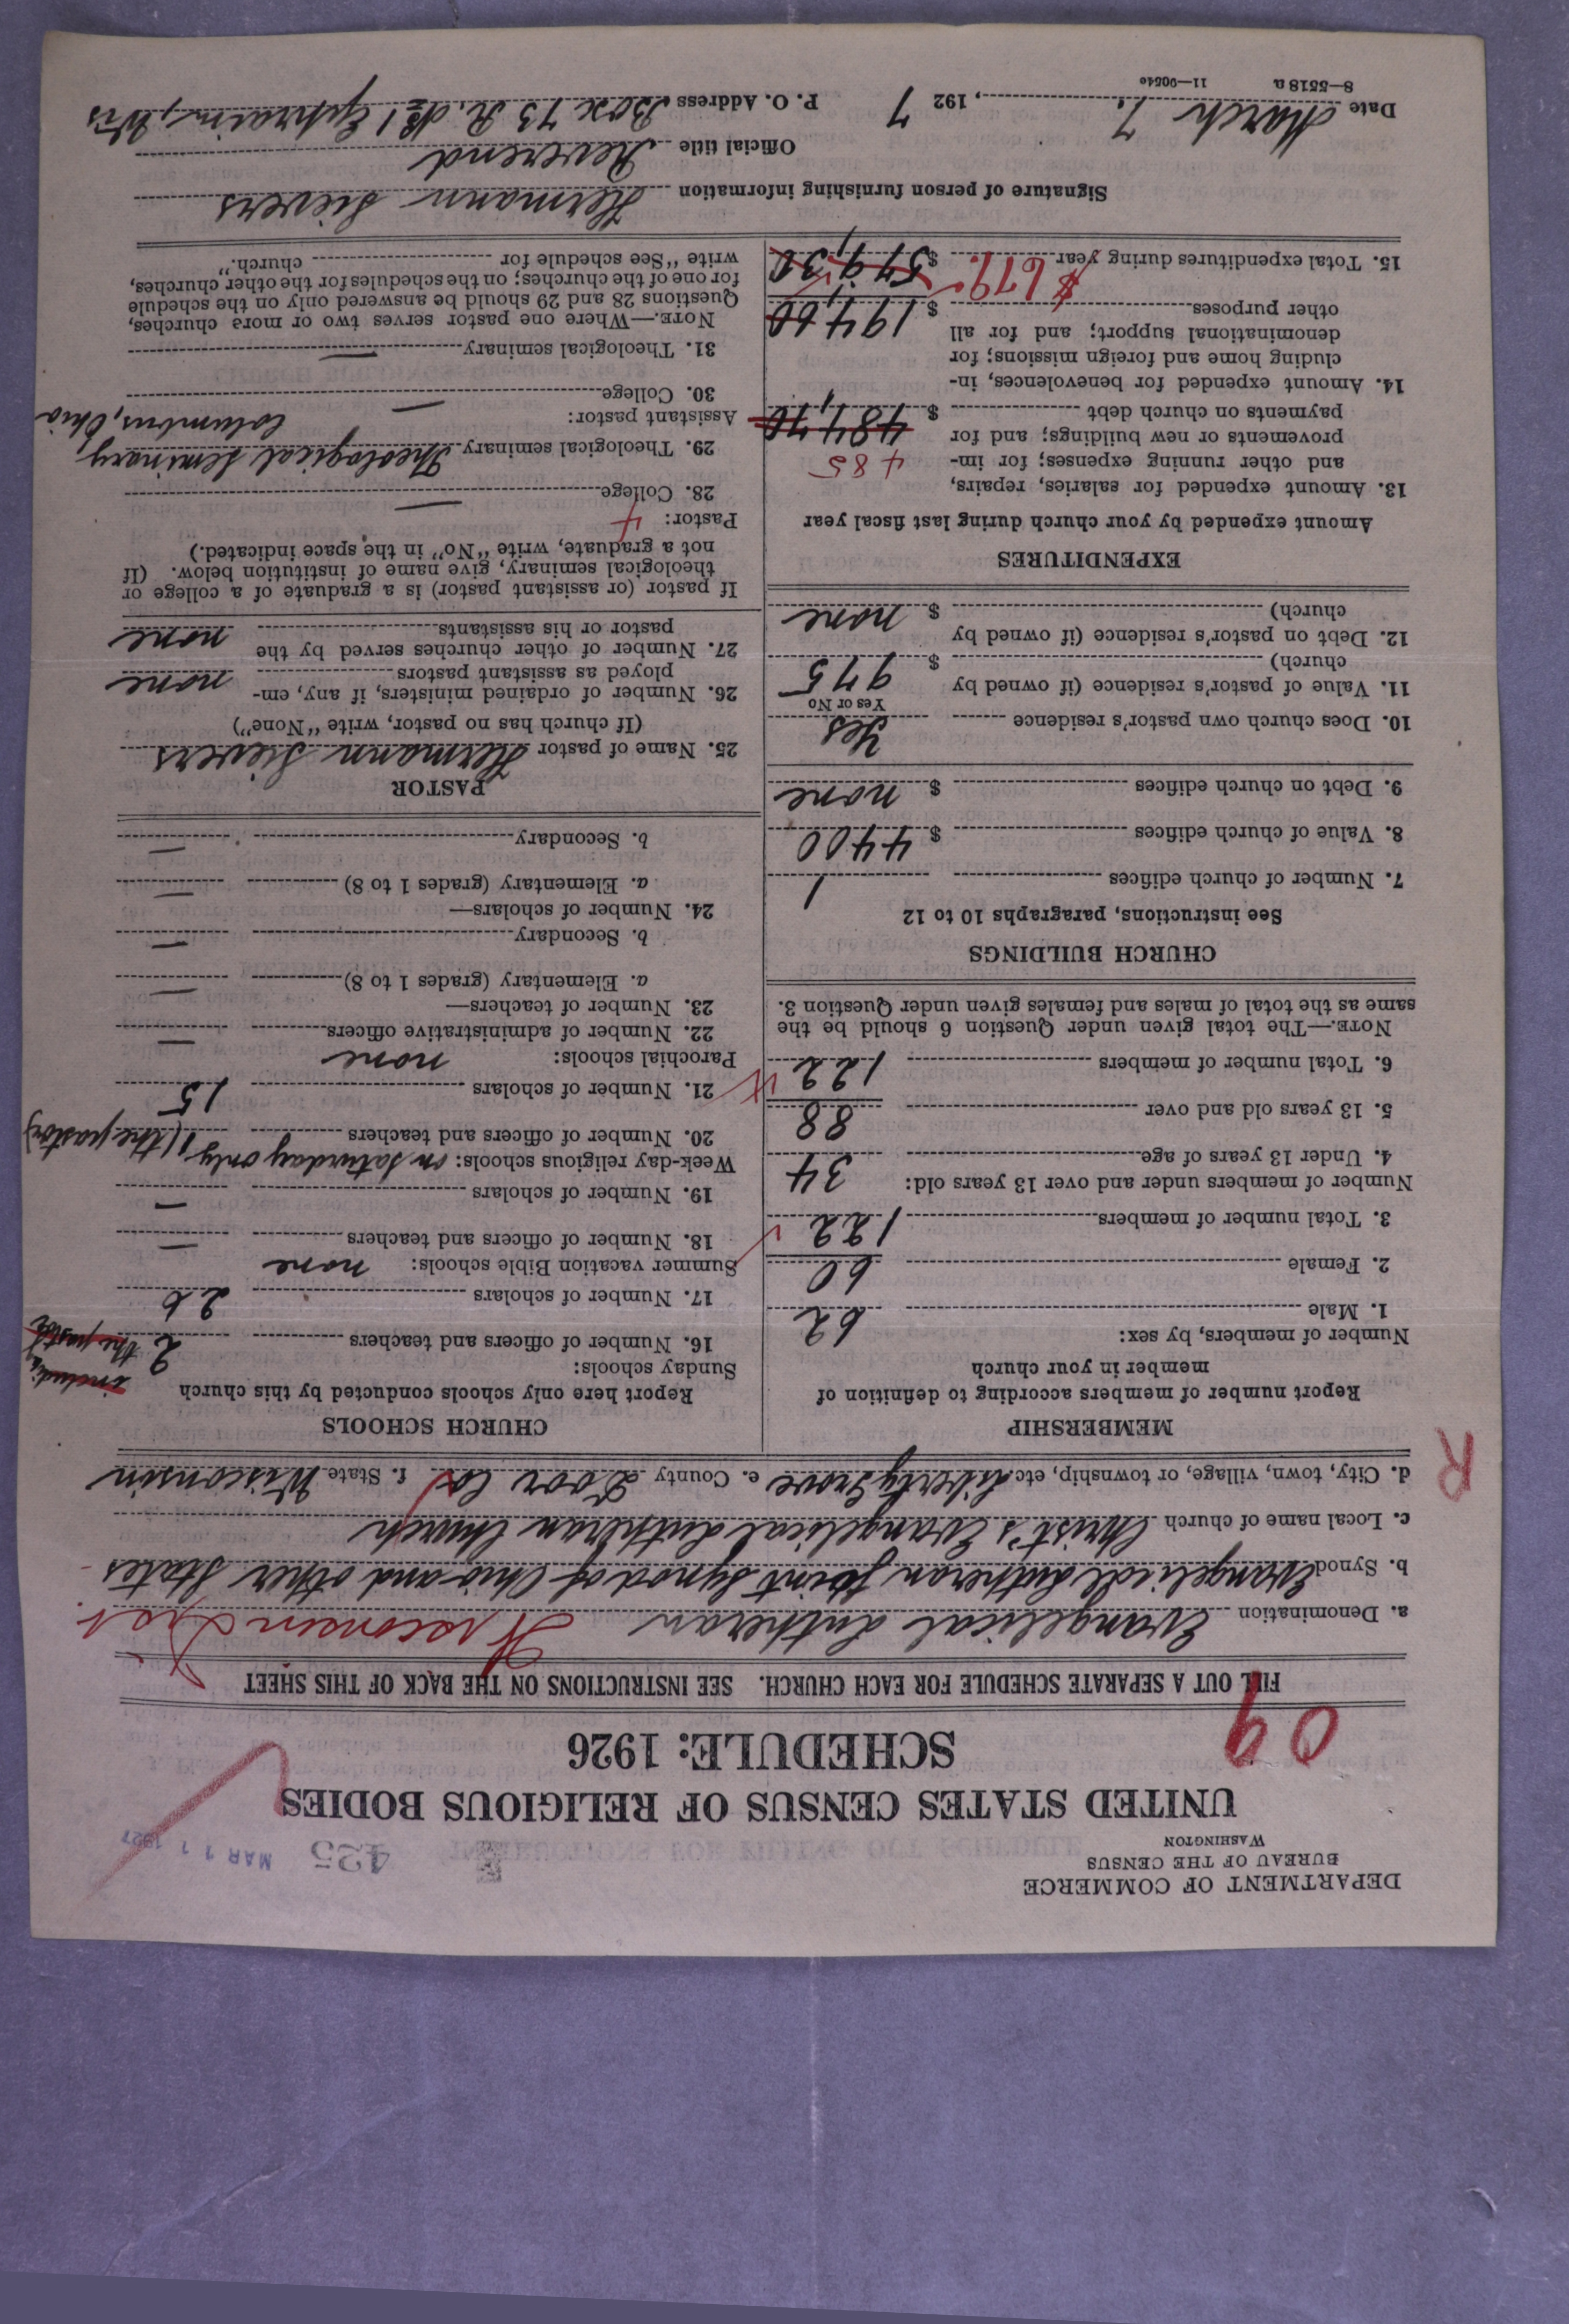 DEPARTMENT OF COMMERCE
BUREAU OF THE CENSUS
WASHINGTON
425
MAR 11 1927
UNITED STATES CENSUS OF RELIGIOUS BODIES
SCHEDULE: 1926
09
FILL OUT A SEPARATE SCHEDULE FOR EACH CHURCH. SEE INSTRUCTIONS ON THE BACK OF THIS SHEET
a. Denomination Evangelical Lutheran Wisconsin Dist.
b. Synod Evangelical Lutheran Joint Synod of Ohio and other States
c. Local name of church Christ's Evangelical Lutheran Church
d. City, town, village, or township, etc. Liberty Grove e. County Door Co f. State Wisconsin
R
MEMBERSHIP
Report number of members according to definition of
member in your church
Number of members, by sex:
1. Male 62
2. Female 60
3. Total number of members 122
Number of members under and over 13 years old:
4. Under 13 years of age 34
5. 13 years old and over 88
6. Total number of members 122
NOTE.—The total given under Question 6 should be the
same as the total of males and females given under Question 3.
CHURCH BUILDINGS
See instructions, paragraphs 10 to 12
7. Number of church edifices 1
8. Value of church edifices $ 4400
9. Debt on church edifices $ none
10. Does church own pastor's residence Yes
Yes or No
11. Value of pastor's residence (if owned by
church) $ 975
12. Debt on pastor's residence (if owned by
church) $ none
EXPENDITURES
Amount expended by your church during last fiscal year
13. Amount expended for salaries, repairs,
and other running expenses; for im- 485
provements or new buildings; and for 484,70
payments on church debt $
14. Amount expended for benevolences, in-
cluding home and foreign missions; for
denominational support; and for all
other purposes $ 194,60
$679.
15. Total expenditures during year $ 579,30
CHURCH SCHOOLS
Report here only schools conducted by this church
Sunday schools: including
16. Number of officers and teachers 2 the pastor
17. Number of scholars 26
Summer vacation Bible schools: none
18. Number of officers and teachers —
19. Number of scholars —
Week-day religious schools: on Saturday only
20. Number of officers and teachers 1 (the pastor)
21. Number of scholars 15
Parochial schools: none
22. Number of administrative officers —
23. Number of teachers—
a. Elementary (grades 1 to 8) —
b. Secondary —
24. Number of scholars—
a. Elementary (grades 1 to 8) —
b. Secondary —
PASTOR
25. Name of pastor Hermann Sievers
(If church has no pastor, write "None")
26. Number of ordained ministers, if any, em-
ployed as assistant pastors none
27. Number of other churches served by the
pastor or his assistants none
If pastor (or assistant pastor) is a graduate of a college or
theological seminary, give name of institution below. (If
not a graduate, write "No" in the space indicated.)
Pastor: 4
28. College —
29. Theological seminary Theological Seminary,
Columbus, Ohio
Assistant pastor:
30. College —
31. Theological seminary —
NOTE.—Where one pastor serves two or more churches,
Questions 28 and 29 should be answered only on the schedule
for one of the churches; on the schedules for the other churches,
write "See schedule for church."
Signature of person furnishing information Hermann Sievers
Official title Reverend
Date March 7. , 1927 P. O. Address Box 73 R. No 1 Ephraim, Wis
8—5518 a 11—9054c